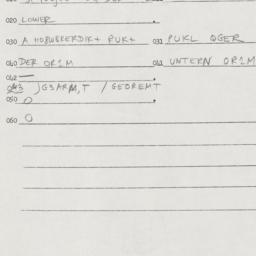 020 LOWER
030 A HOBWEKERDIKT PUKT 031 PUKL OGER
040 DER OR1M 041 UNTERN OR1M
042 —
043 JGSARM,T / GEDREMT
050 O
060 O